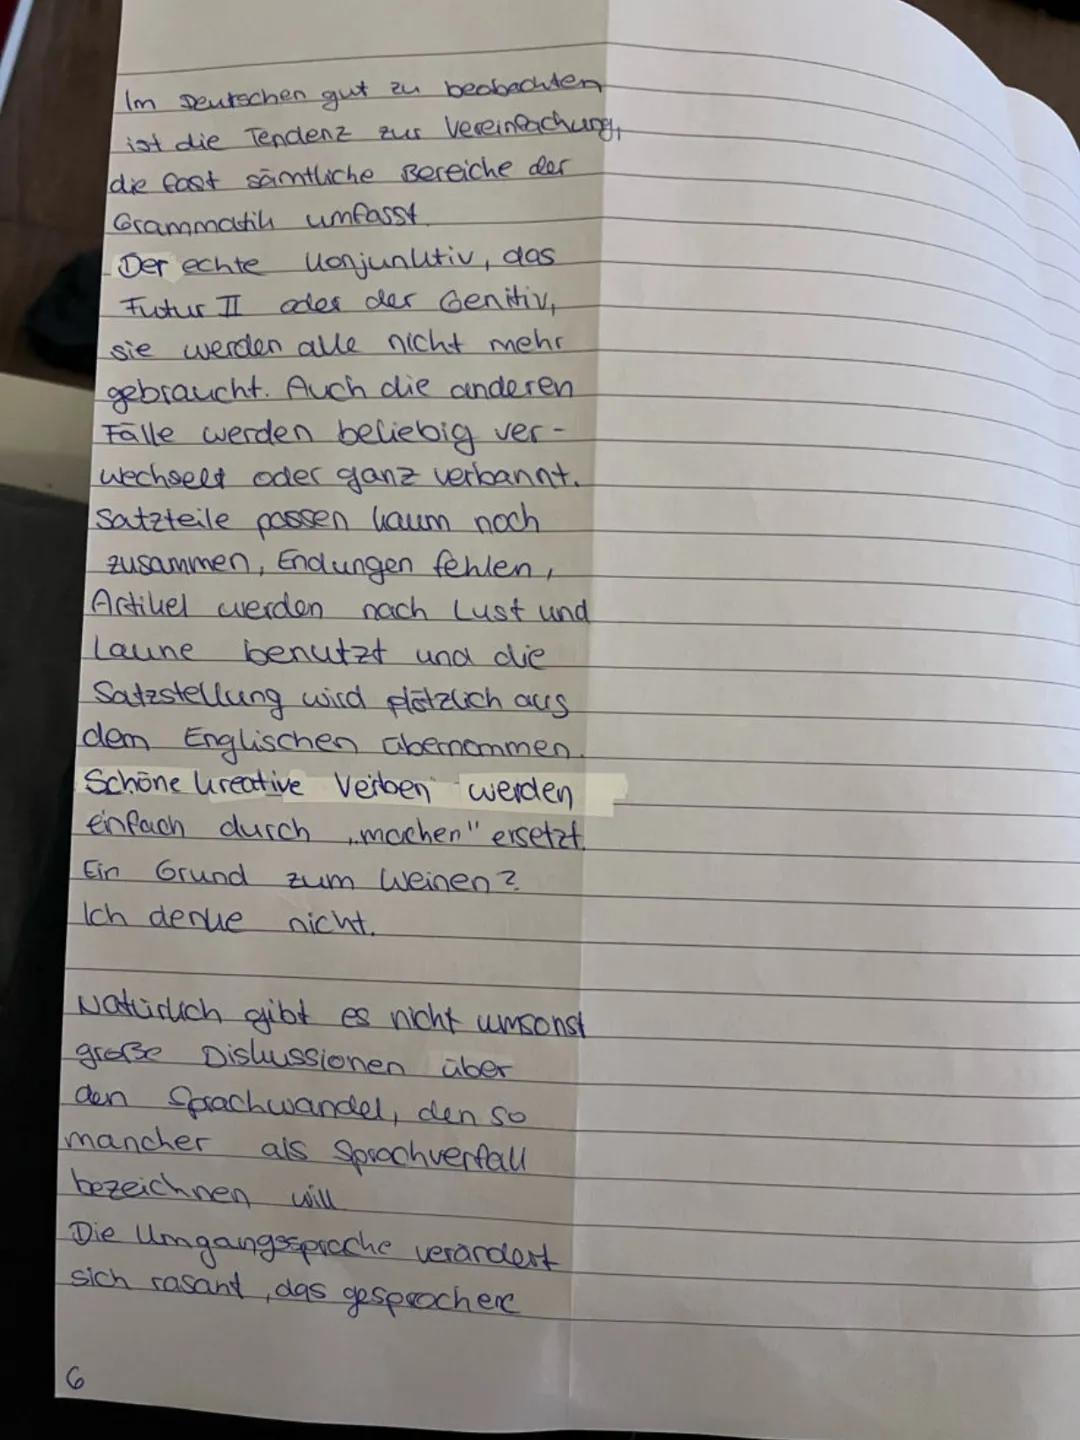 Im Deutschen gut zu beobachten
ist die Tendenz zur Vereinfachung,
die fast sämtliche Bereiche der
Grammatik umfasst.
Der echte Konjunktiv, das
Futur II oder der Genitiv,
sie werden alle nicht mehr
gebraucht. Auch die anderen
Fälle werden beliebig ver-
wechselt oder ganz verbannt.
Satzteile passen kaum noch
zusammen, Endungen fehlen,
Artikel werden nach Lust und
Laune benutzt und die
Satzstellung wird plötzlich aus
dem Englischen übernommen.
Schöne kreative Verben werden
einfach durch „machen" ersetzt.
Ein Grund zum Weinen?
Ich denke nicht.
Natürlich gibt es nicht umsonst
große Diskussionen über
den Sprachwandel, den so
mancher als Sprachverfall
bezeichnen will.
Die Umgangssprache verändert
sich rasant, das gesprochene
6